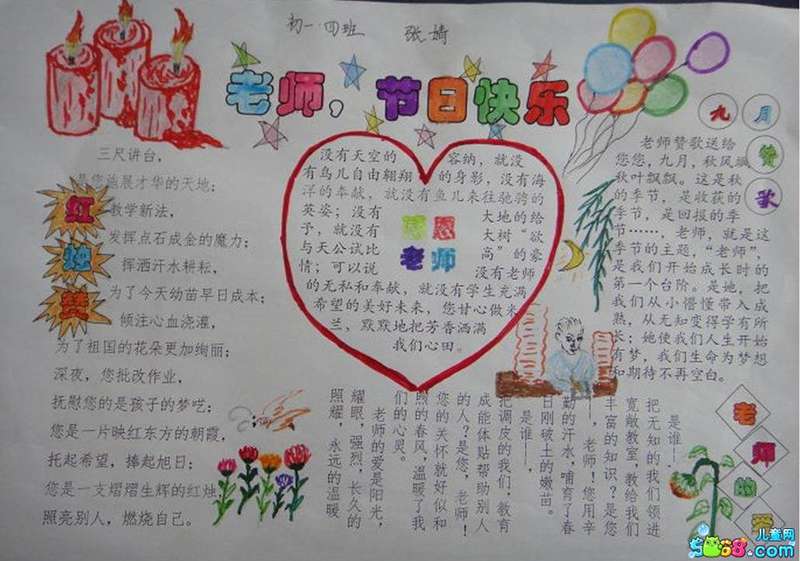 初一·四班 张婧
老师，节日快乐
三尺讲台，
是您施展才华的天地；
教学新法，
发挥点石成金的魔力；
挥洒汗水耕耘，
为了今天幼苗早日成本；
倾注心血浇灌，
为了祖国的花朵更加绚丽；
深夜，您批改作业，
抚慰您的是孩子的梦呓；
您是一片映红东方的朝霞，
托起希望，捧起旭日；
您是一支熠熠生辉的红烛，
照亮别人，燃烧自己。
红
烛
赞
没有天空的 容纳，就没
有鸟儿自由翱翔 的身影，没有海
洋的奉献，就没有鱼儿来往驰骋的
英姿；没有 大地的给
予，就没有 大树“欲
与天公试比 高”的豪
情；可以说 没有老师
的无私和奉献，就没有学生充满
希望的美好未来，您甘心做米
兰，默默地把芳香洒满
我们心田。
感恩
老师
九
月
赞
歌
老师赞歌送给
您您，九月，秋风飒
秋叶飘飘。这是秋
的季节，是收获的
季节，是回报的季
节……，老师，就是这
季节的主题，“老师”，
是我们开始成长时的
第一个台阶。是她，把
我们从小懵懂带入成
熟，从无知变得学有所
长；她使我们人生开始
有梦，我们生命为梦想
和期待不再空白。
是谁——，
把无知的我们领进
宽敞教室，教给我们
丰富的知识？是您
——，老师！您用辛
勤的汗水，哺育了春
日刚破土的嫩苗。
是谁——，
把调皮的我们，教育
成能体贴帮助别人
的人？是您，老师！
您的关怀就好似和
煦的春风，温暖了我
们的心灵。
老师的爱是阳光，
耀眼，强烈，长久的
照耀，永远的温暖
老
师
的
爱
儿童网
9068.com